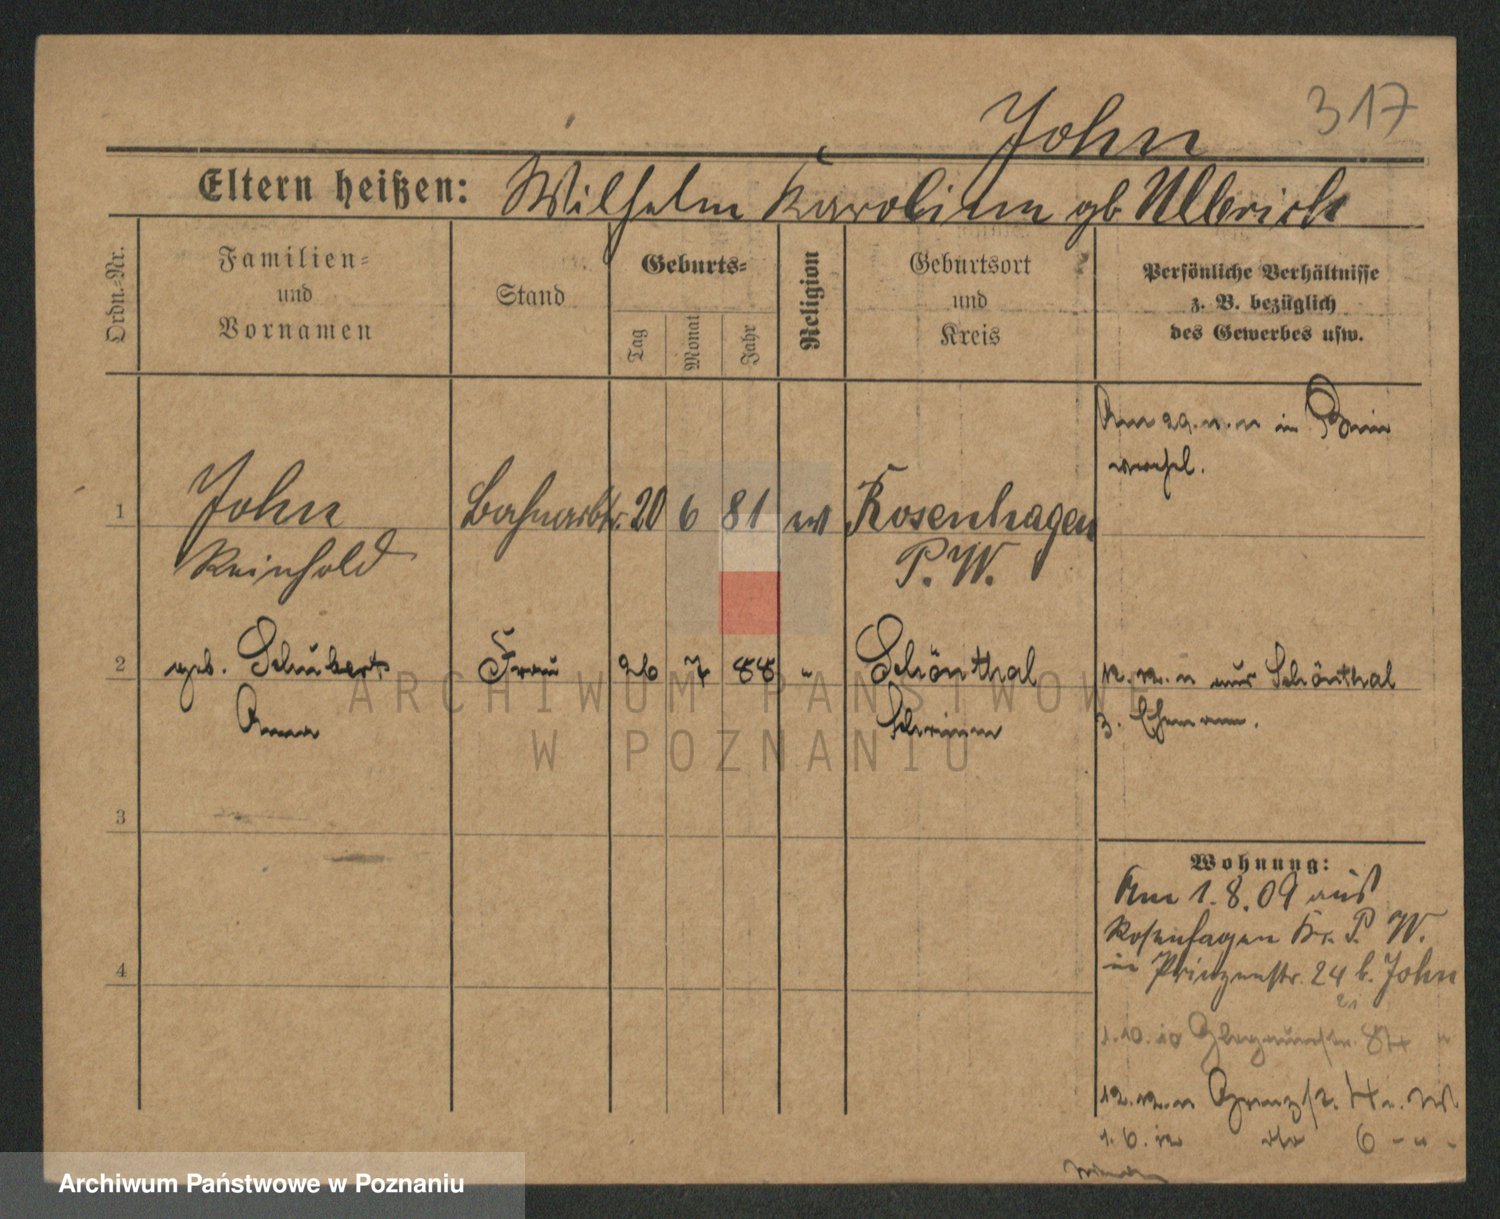 317
John
Eltern heißen: Wilhelm Karoline gb Ullrich
Ordn.-Nr.
Familien-
und
Vornamen
Stand
Geburts-
Tag
Monat
Jahr
Religion
Geburtsort
und
Kreis
Persönliche Verhältnisse
z. B. bezüglich
des Gewerbes usw.
Am 29. in
1 John Bahnarbtr. 20 6 81 ev Rosenhagen
Reinhold P. W.
2 geb. Schubert Frau 26 7 88 " Schönthal
Anna
aus Schönthal
z. Ehemann.
3
4
Wohnung:
Am 1.8.09 aus
Rosenhagen Kr. P. W.
in Prinzenstr. 24 b. John
21
1.10.10
6 - " -
ARCHIWUM PAŃSTWOWE
W POZNANIU
Archiwum Państwowe w Poznaniu